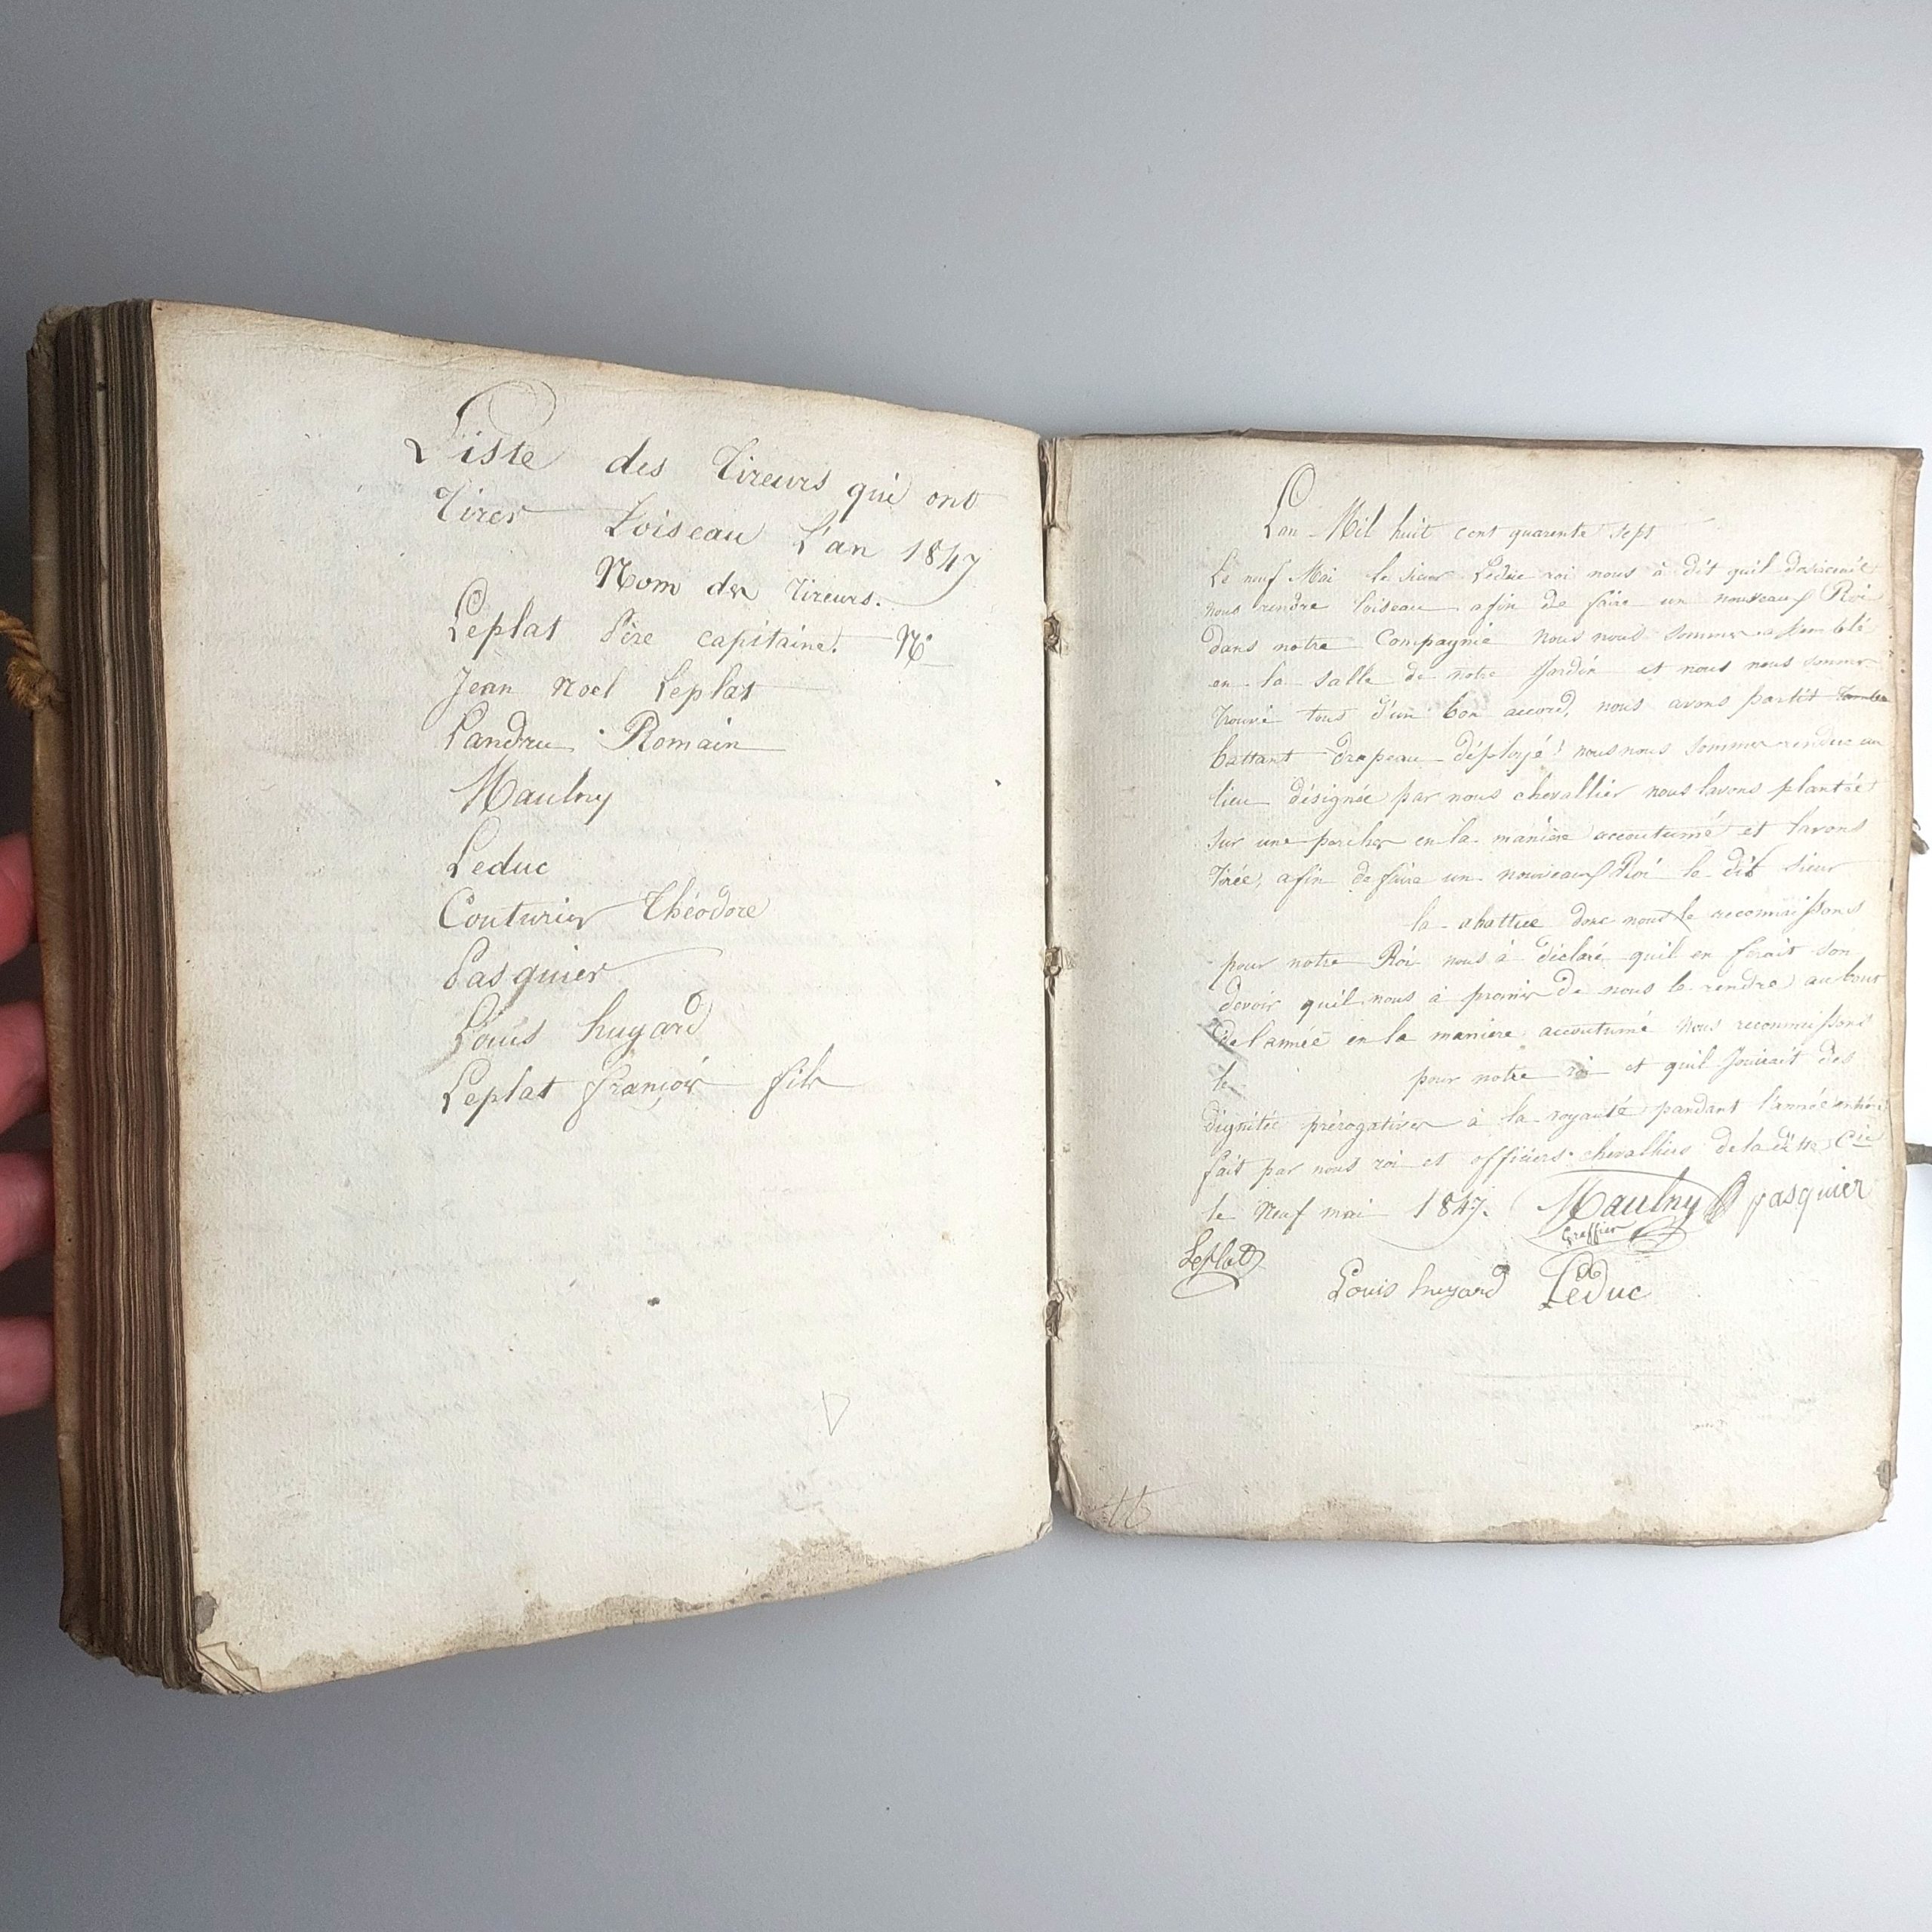 Liste des Tireurs qui ont
Tirer Loiseau L'an 1847
Nom des Tireurs.
Leplat Père capitaine. N°
Jean Noel Leplat
Landru Romain
Maulny
Leduc
Couturier Théodore
Pasquier
Louis huyard
Leplat François fils
Lan Mil huit cent quarente sept
Le neuf Mai le sieur Leduc roi nous à dit quil desireroit
nous rendre loiseau afin de faire un nouveau Roi
dans notre Compagnie nous nous sommes assemblé
en la salle de notre Jardin et nous nous sommes
trouvé tous d'un bon accord, nous avons partit
battant drapeau déployé nous nous sommes rendue au
lieu désignée par nous chevallier nous lavons plantée
sur une percher en la manière accoutumé et lavons
Tirée, afin de faire un nouveau Roi le dit sieur
la abattue donc nous le reconnaissons
pour notre Roi nous à déclaré quil en ferait son
devoir quil nous à promis de nous le rendre au bout
de l'année en la maniere accoutumé nous reconnaissons
le pour notre roi et quil Jouirait des
dignitée prérogatives à la royauté pandant l'année entière
fait par nous roi et officiers chevalliers de la ditte Cie
le Neuf mai 1847. Maulny Pasquier
Greffier
Leplat
Louis huyard Leduc